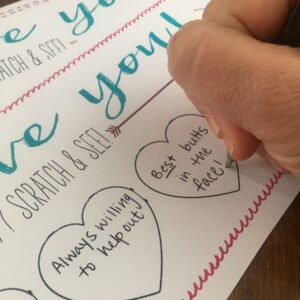 e yo
SCRATCH & SEE!
ve you!
SCRATCH & SEE!
Always willing
to help out!
Best butts
in the
face!